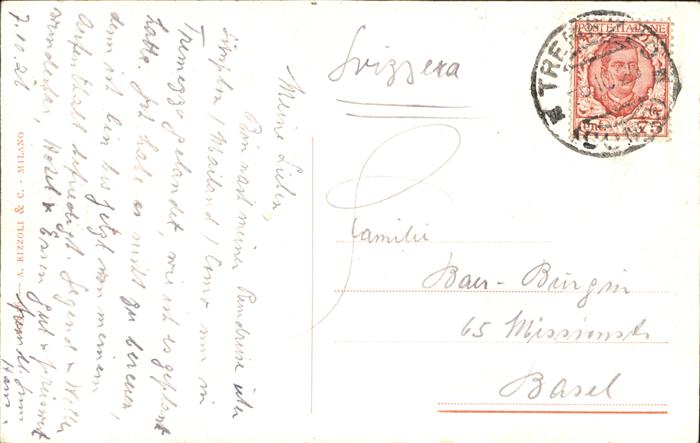 Meine Lieben,
Bin nach meiner Rundreise über
Simplon / Mailand / Como nun in
Tremezzo gelandet, wie ich es geplant
hatte. Ich habe es nicht zu bereuen,
denn ich bin bis jetzt von meinem
Aufenthalt befriedigt. Gegend & Wetter
wunderbar, Hotel & Essen gut & preiswert
7.10.26
Hans.
A. RIZZOLI & C. - MILANO
Svizzera
POSTE ITALIANE
75
TREMEZZO
Familie
Baer-Bürgin
65 Missionsstr
Basel